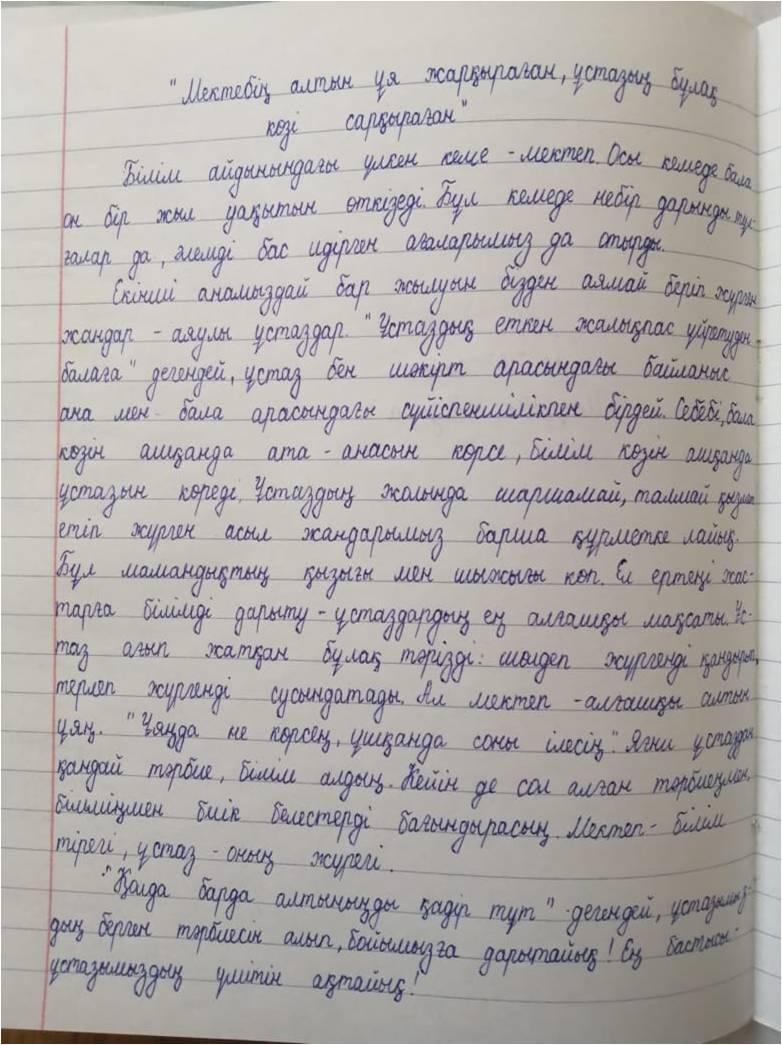 "Мектебің алтын ұя жарқыраған, ұстазың бұлақ
көзі сарқыраған"
Білім айдынындағы үлкен кеме - мектеп. Осы кемеде бала
он бір жыл уақытын өткізеді. Бұл кемеде небір дарынды тұл-
ғалар да, әлемді бас идірген ағаларымыз да отырды.
Екінші анамыздай бар жылуын бізден аямай беріп жүрген
жандар - аяулы ұстаздар. "Ұстаздық еткен жалықпас үйретуден -
балаға" дегендей, ұстаз бен шәкірт арасындағы байланыс
ана мен бала арасындағы сүйіспеншілікпен бірдей. Себебі, бала
көзін ашқанда ата - анасын көрсе, білім көзін ашқанда
ұстазын көреді. Ұстаздың жолында шаршамай, талмай қызмет
етіп жүрген асыл жандарымыз барша құрметке лайық.
Бұл мамандықтың қызығы мен шыжығы көп. Ел ертеңі жас-
тарға білімді дарыту - ұстаздардың ең алғашқы мақсаты. Ұс-
таз ағып жатқан бұлақ тәрізді: шөлдеп жүргенді қандырып,
терлеп жүргенді сусындатады. Ал мектеп - алғашқы алтын
ұяң. "Ұяңда не көрсең, ұшқанда соны ілесің". Яғни ұстаздан
қандай тәрбие, білім алдың. Кейін де сол алған тәрбиеңмен,
біліміңмен биік белестерді бағындырасың. Мектеп - білім
тірегі, ұстаз - оның жүрегі.
"Қолда барда алтыныңды қадір тұт" - дегендей, ұстазымыз-
дың берген тәрбиесін алып, бойымызға дарытайық! Ең бастысы -
ұстазымыздың үмітін ақтайық!